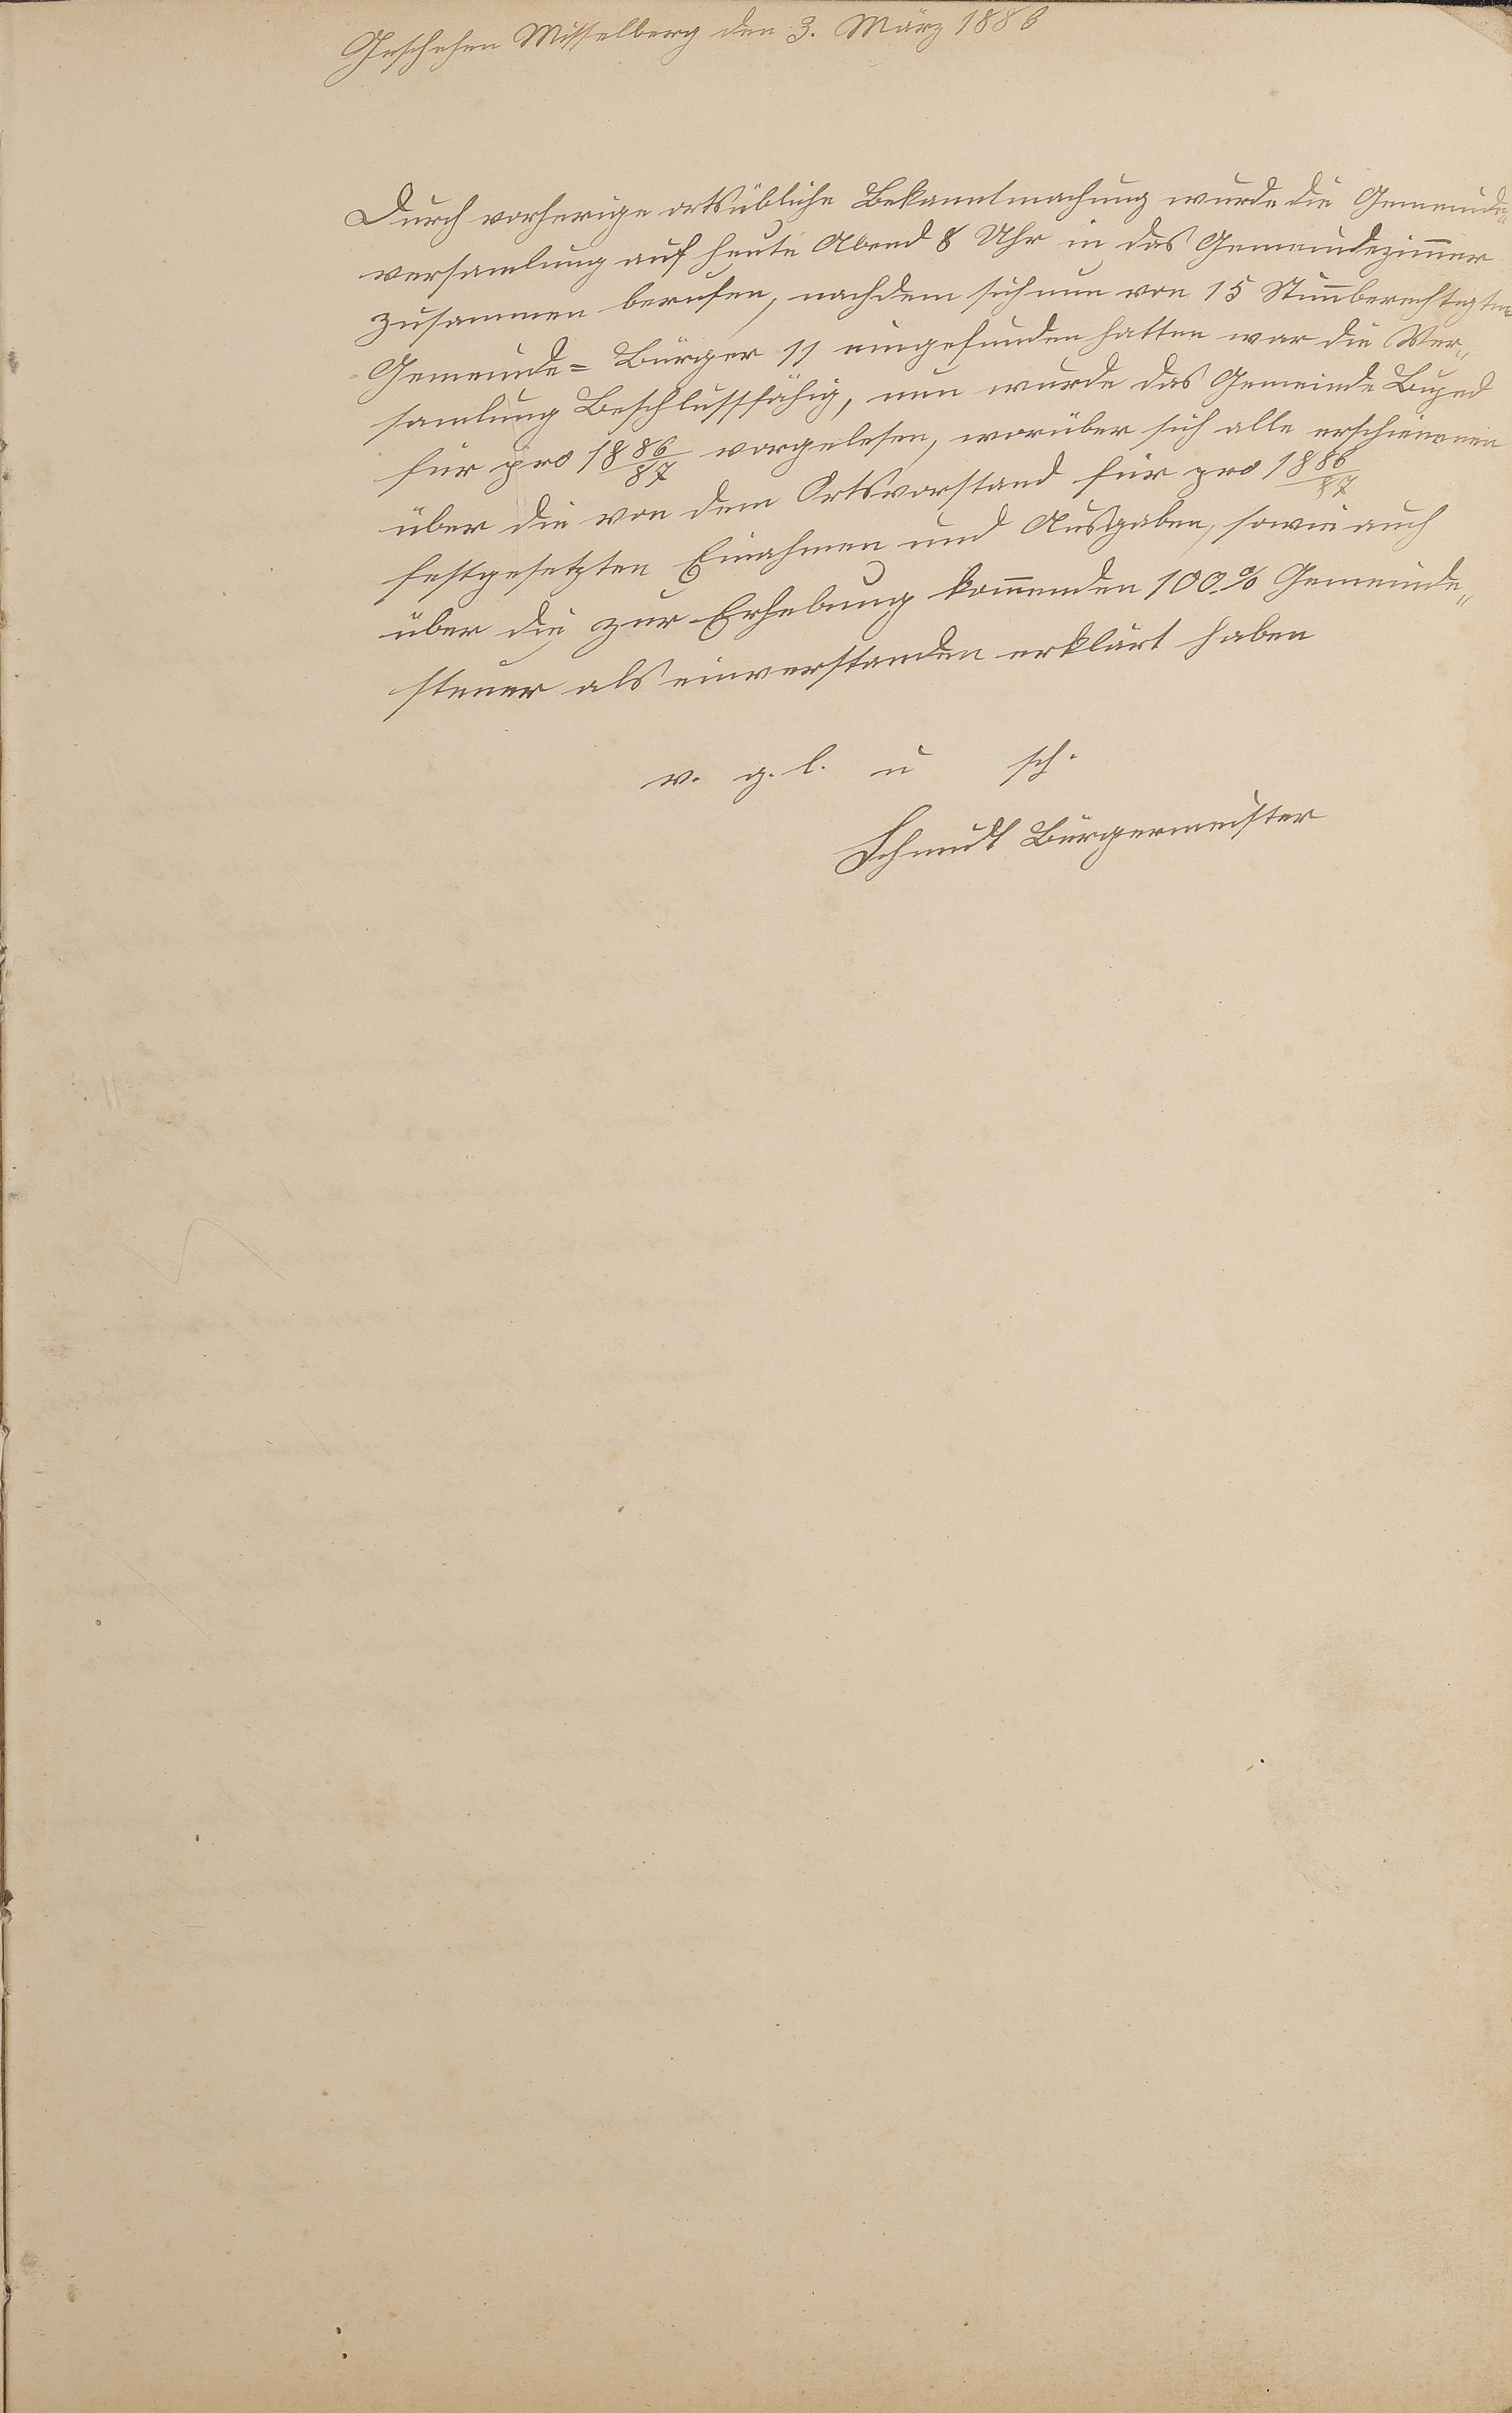 Geschehen Misselberg den 3. März 1886
Durch vorherige ortsübliche Bekanntmachung wurde die Gemeinde„
versamlung auf heute Abend 8 Uhr in das Gemeindezim̄er
zusammen berufen, nachdem sich nun von 15 Stim̄berechtigten
Gemeinde= Bürger 11 eingefunden hatten war die Ver„
samlung Beschlussfähig, nun wurde das Gemeinde Buged
für pro 1886/87 vorgelesen, worüber sich alle erschienenen
über die von dem Ortsvorstand für pro 1886/87
festgesetzten Einahmen und Ausgaben, sowie auch
über die zur Erhebung kom̄enden 100% Gemeinde„
steuer als einverstanden erklärt haben
v. g. l. u sch.
Schmidt Bürgermeister